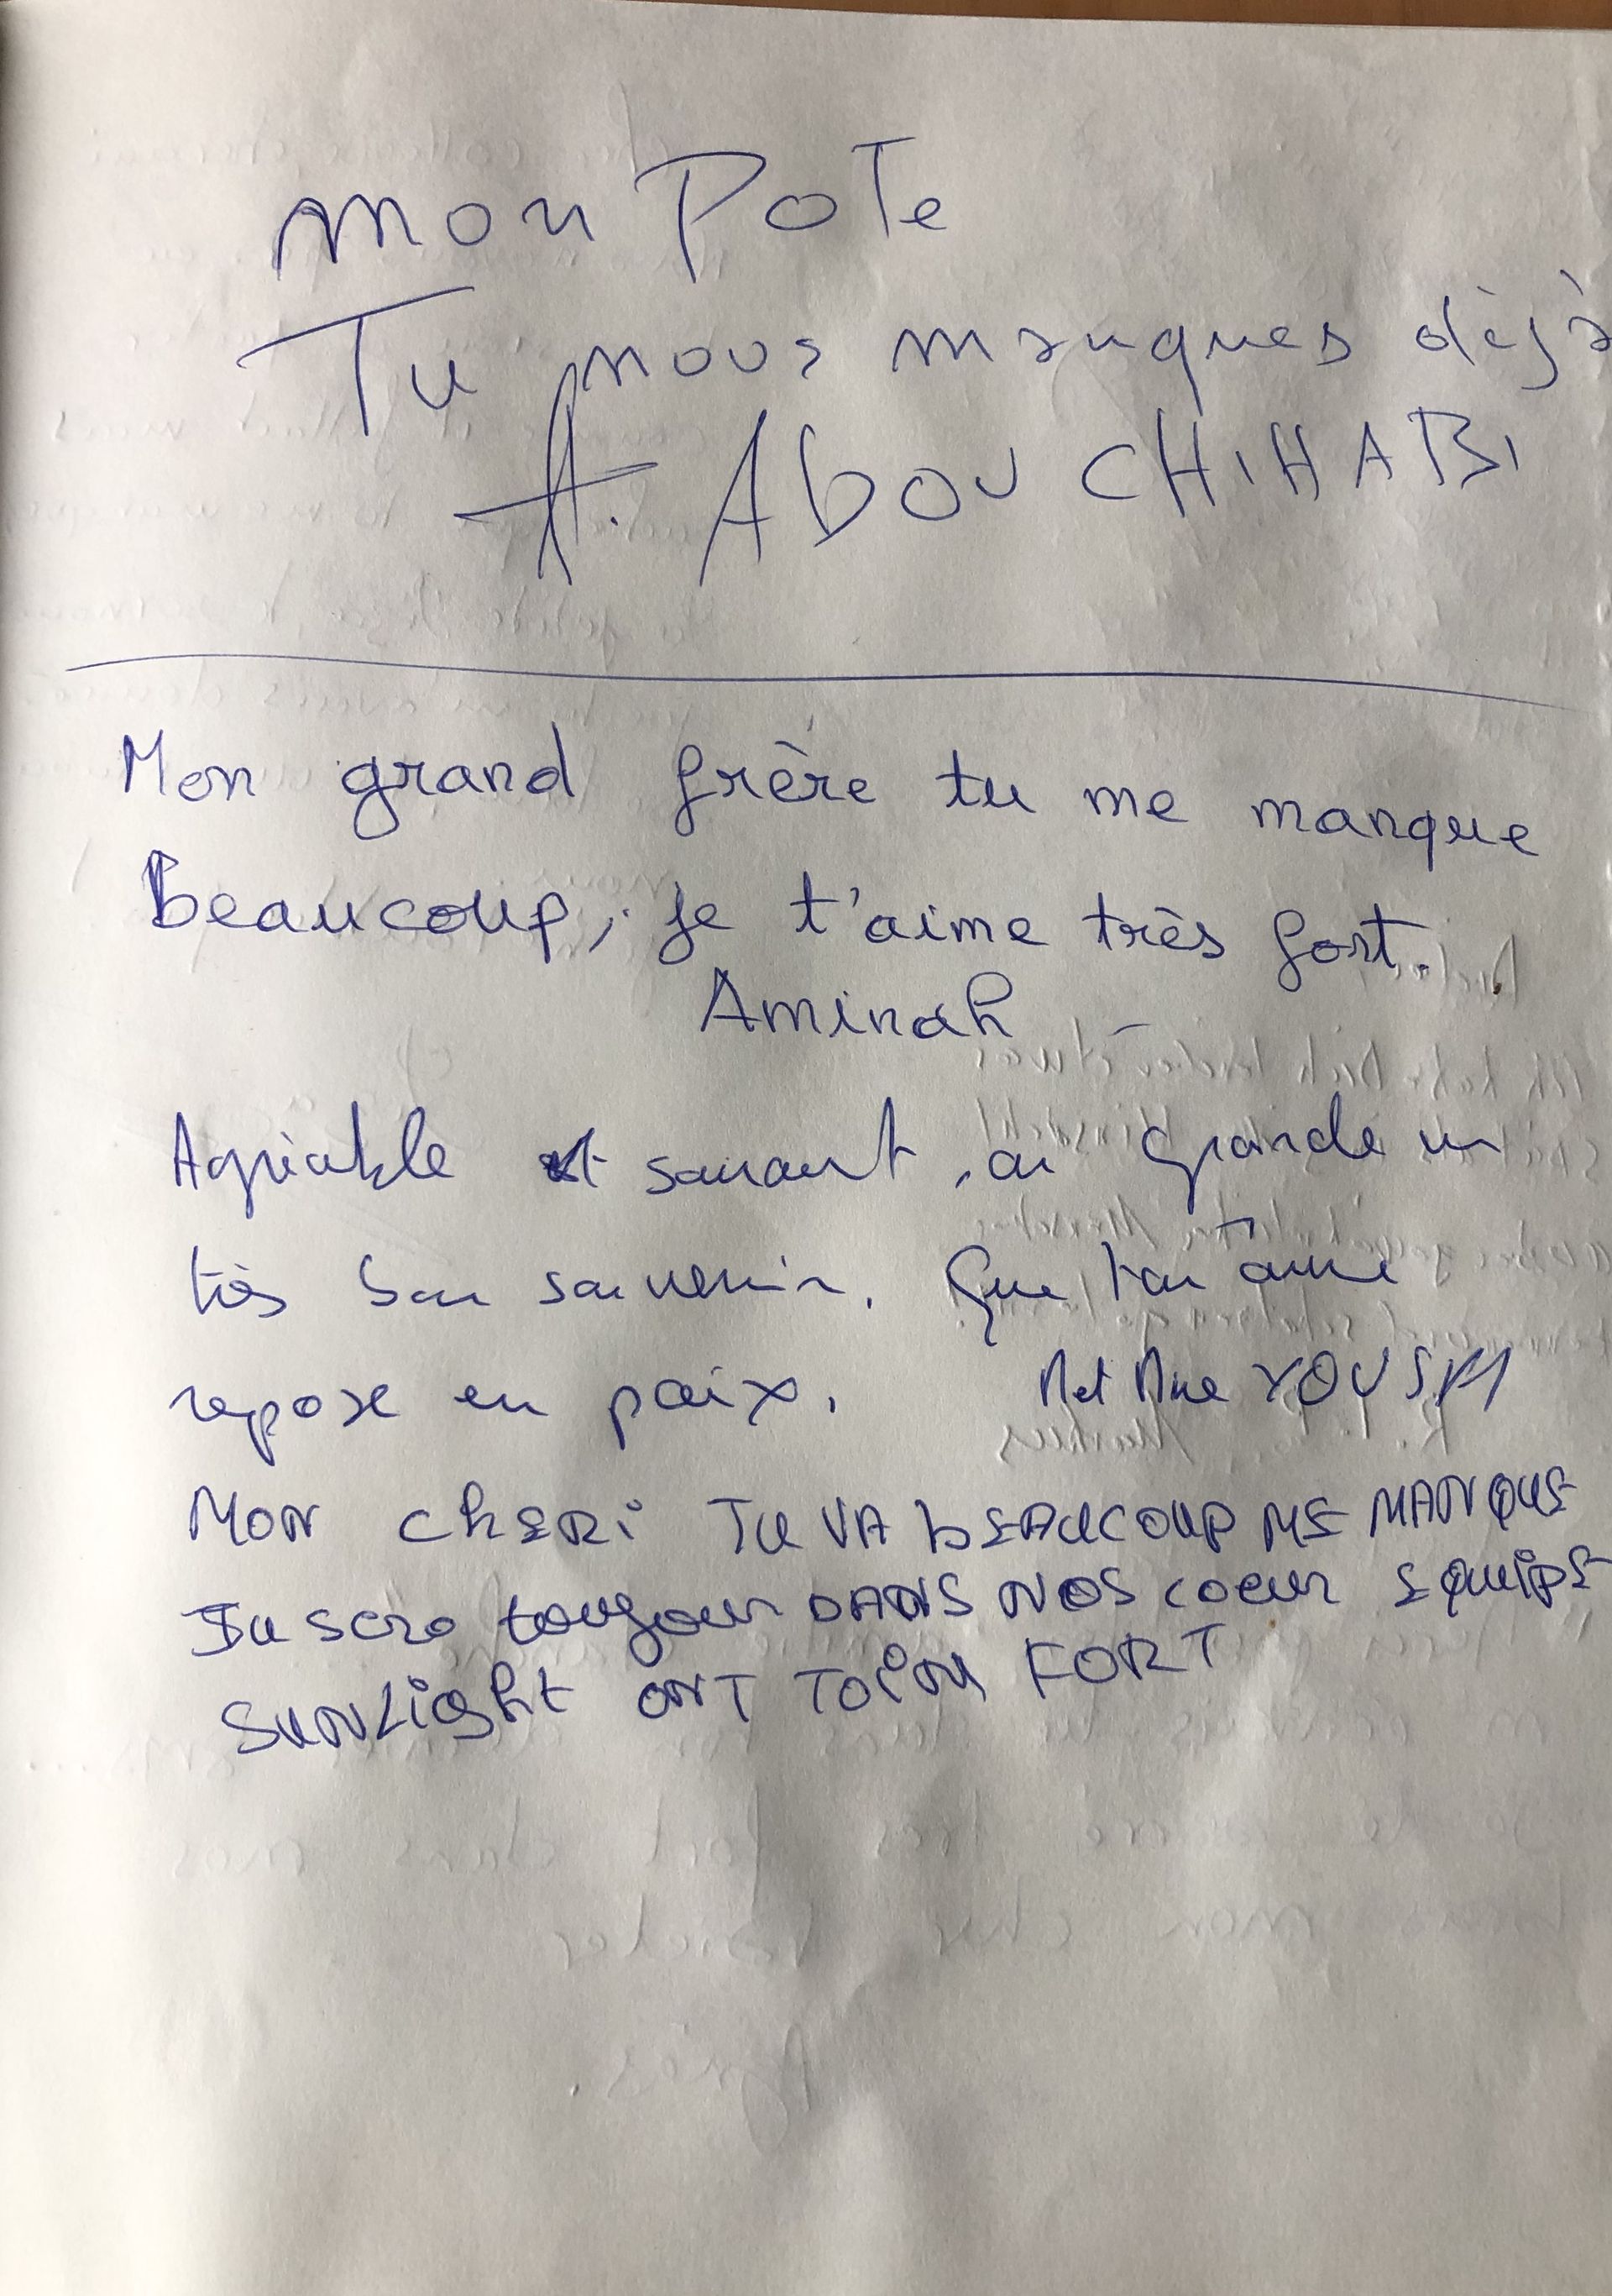 mon Pote
Tu nous manques dèjà
A. Abou CHIHABI
Mon grand frère tu me manque
Beaucoup, je t'aime très fort.
Aminah
Agréable et souriant, on garde un
très bon souvenir. Que ton âme
repose en paix. M et Mme YOUSFI
MON ChERi TU VA bEAUCOUP ME MANQUE
Tu sera toujour DANS NOS coeur EQUiPE
SUNLight ONT T FORT